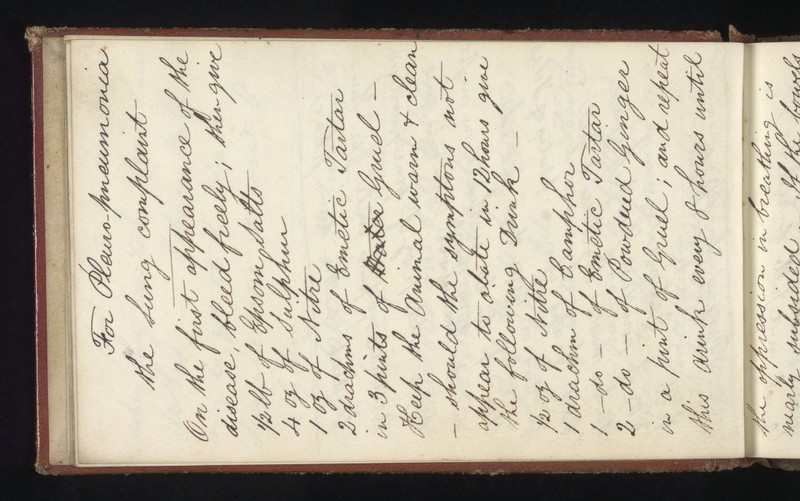 For Pleuro-pneumonia
the Lung complaint
On the first appearance of the
disease, bleed freely; then give
1/2 lb of Epsom Salts
4 oz of Sulphur
1 oz of Nitre
2 drachms of Emetic Tartar
in 3 pints of Gruel —
Keep the Animal warm & clean
— should the symptoms not
appear to abate in 12 hours give
the following Drink —
1/2 oz of Nitre
1 drachm of Camphor
1 — do — of Emetic Tartar
2 — do — of Powdered Ginger
in a pint of Gruel; and repeat
this drink every 8 hours until
the oppression in breathing is
nearly subsided. If the bowels